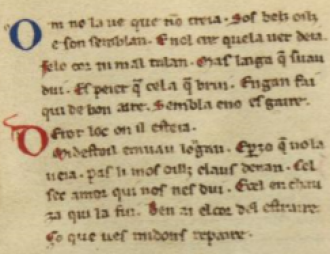 Om no la ue que nō creia. Sos bels oils
e son semblan. E nol cur quela uer deia.
felo cor ni mal talan. Mas laiga q̄ suau
dui. Es peier q̄ cela q̄ brui. Enган fai
qui de bon aire. Sembla e no es gaire.
De tot loc on il esteia.
Mi destoil em uau lognan. E ꝑ zo q̄ nō la
ueia. Pas li mos oilz claus denan. Cel
sec amor qui nos nes dui. E cel en chau
za qui la fui. Ben ai el cor del estraire
So que ues midons repaire.